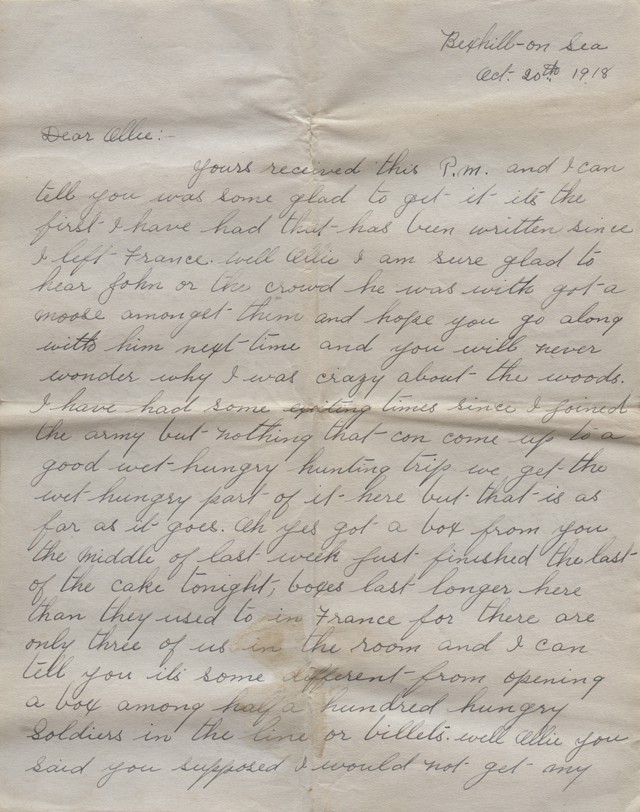 Bexhill-on Sea
Oct. 20th 1918
Dear Ollie:-
Yours received this P.m. and I can
tell you was some glad to get it its the
first I have had that has been written since
I left France. well Ollie I am sure glad to
hear John or the crowd he was with got a
moose amongst them and hope you go along
with him next time and you will never
wonder why I was crazy about the woods.
I have had some exiting times since I joined
the army but nothing that con come up to a
good wet hungry hunting trip. we get the
wet hungry part of it here but that is as
far as it goes. Oh yes got a box from you
the middle of last week just finished the last
of the cake tonight, boxes last longer here
than they used to in France for there are
only three of us in the room and I can
tell you its some different from opening
a box among half a hundred hungry
Soldiers in the line or billets. well Ollie you
said you supposed I would not get my